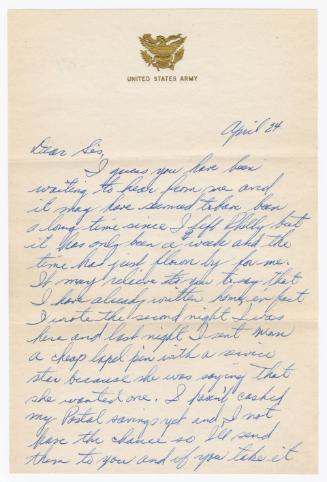 UNITED STATES ARMY
April 24
Dear Sis,
I guess you have been
waiting to hear from me and
it may have seemed to have been
a long time since I left Holly but
it has only been a week and the
time has just flown by for me.
It may relieve you to say that
I have already written home, in fact
I wrote the second night I was
here and last night I sent Mom
a cheap lapel pin with a sivice
star because she was saying that
she wanted one. I haven't cashed
my Postal savings yet and I not
have the chance so I'll send
them to you and if you take it